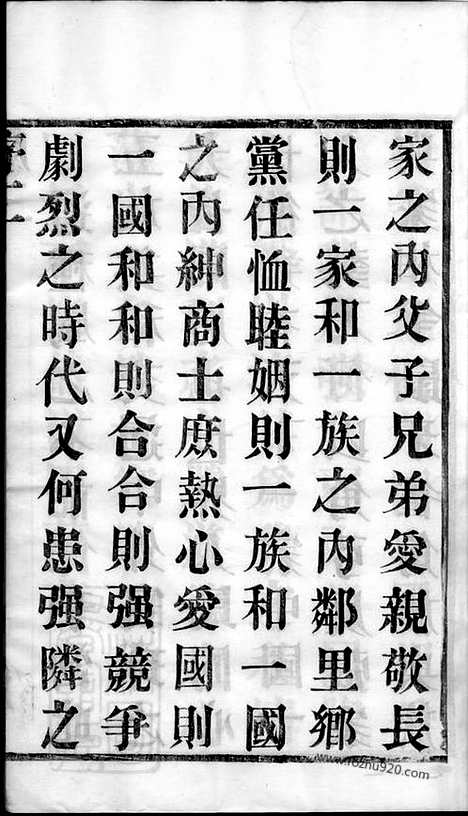 家之內父子兄弟愛親敬長
則一家和一族之內鄰里鄉
黨任恤睦姻則一族和一國
之內紳商士庶熱心愛國則
一國和和則合合則强競爭
劇烈之時代又何患强隣之
www.fozhu920.com